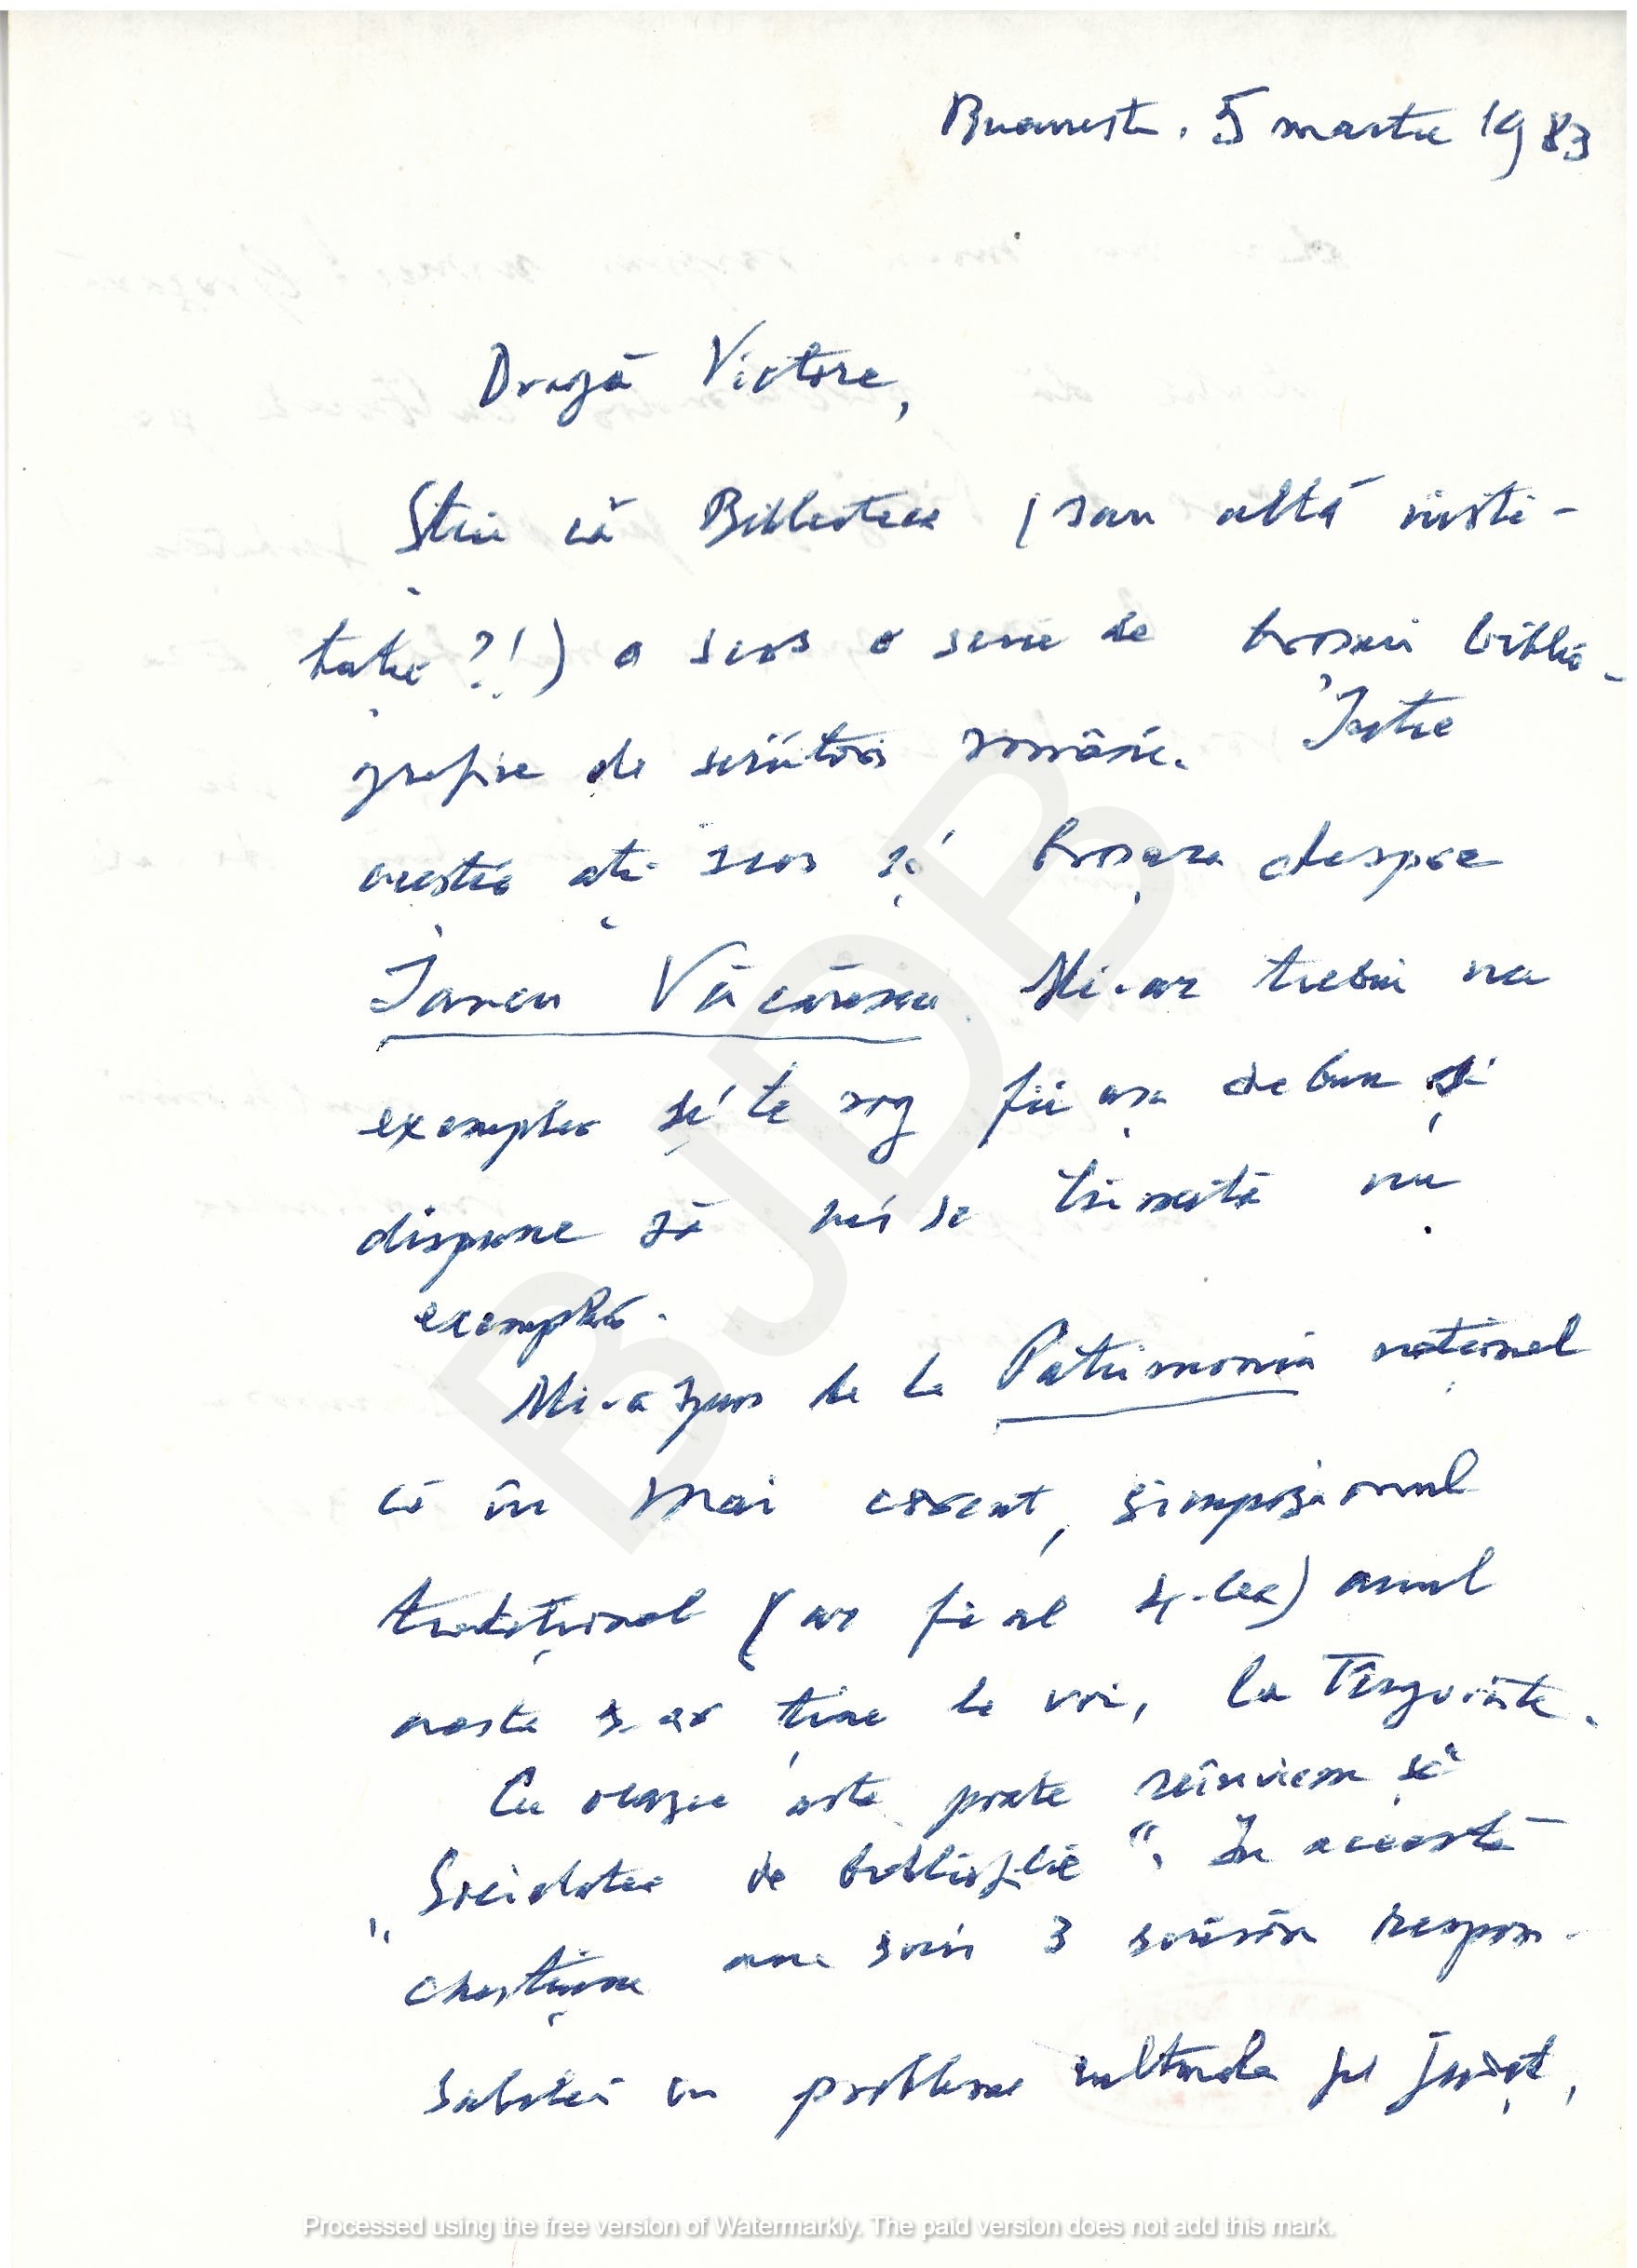 București, 5 martie 1983
Dragă Victore,
Știu că Biblioteca (sau altă insti-
tuție?!) a scos o serie de broșuri biblio-
grafice de scriitori români. Intre
acestea ați scos și broșura despre
Iancu Văcărescu. Mi-ar trebui un
exemplar și te rog fii așa de bun și
dispune să mi se trimită un
exemplar.
Mi-a spus de la Patrimoniu național
că în mai curent, simpozionul
tradițional (ar fi al 4-lea) anul
acesta s-ar ține la voi, la Tîrgoviște.
Cu ocazia asta poate reînviem și
„Societatea de bibliofilie". In această
chestiune am scris 3 scrisori respon-
sabilei cu probleme culturale pe județ,
BJDB
Processed using the free version of Watermarkly. The paid version does not add this mark.